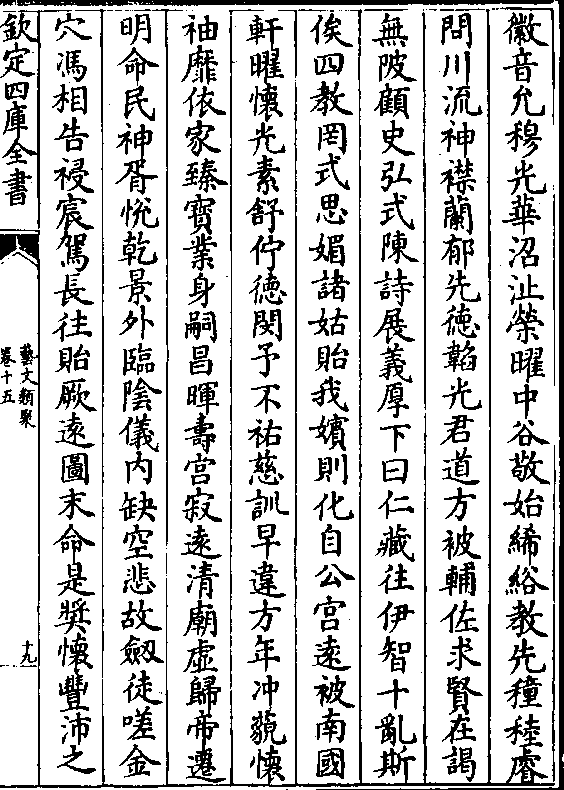 徽音允穆光華沼沚榮曜中谷敬始絺綌教先穜稑睿
問川流神襟蘭郁先德韜光君道方被輔佐求賢在謁
無陂顧史弘式陳詩展義厚下曰仁藏往伊智十亂斯
俟四教罔忒思媚諸姑貽我嬪則化自公宮遠被南國
軒曜懷光素舒佇德閔予不祐慈訓早違方年冲藐懷
袖靡依家臻寳業身嗣昌暉壽宮寂遠清廟虛歸帝遷
明命民神胥悅乾景外臨陰儀內缺空悲故劔徒嗟金
穴馮相告祲宸駕長往貽厥遠圖末命是奬懷豐沛之
欽定四庫全書
藝文類聚
卷十五
十九